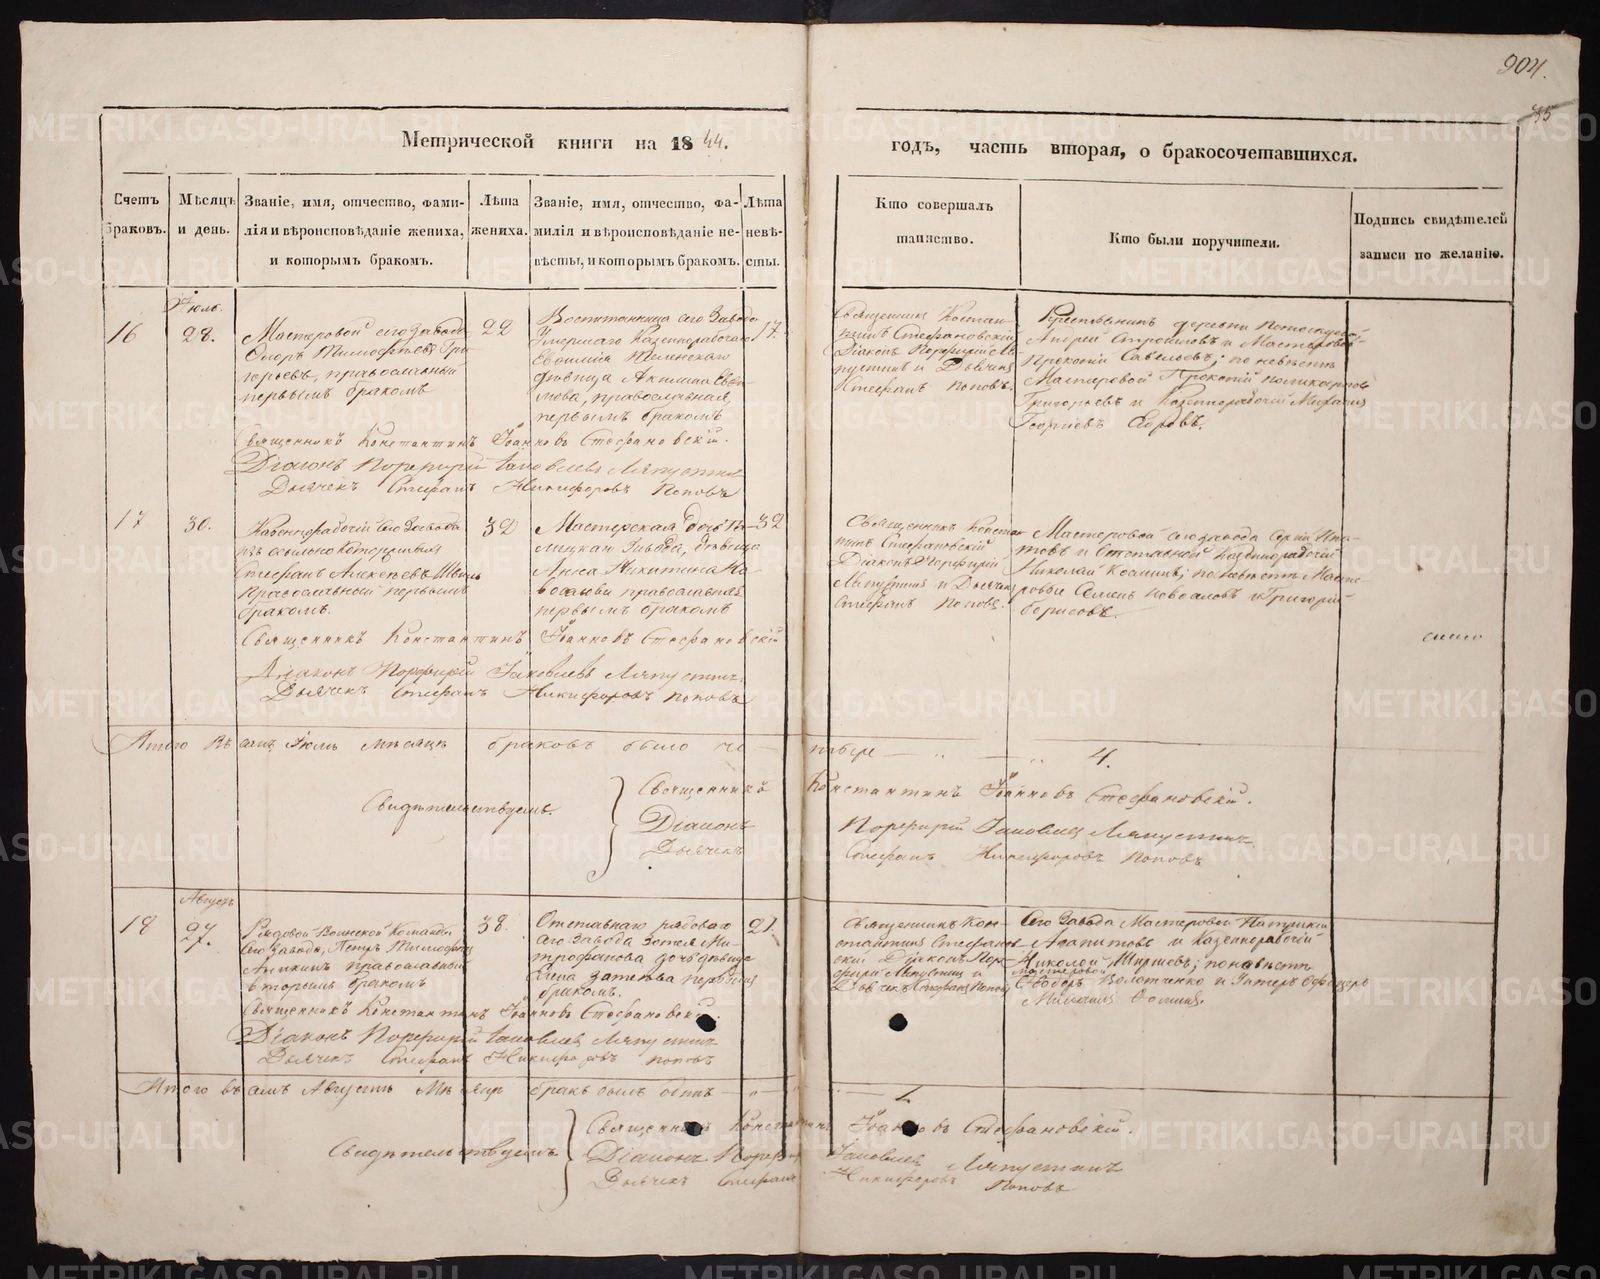 904.
75
Метрической книги на 1844.
годъ, часть вторая, о бракосочетавшихся.
Счетъ браковъ.
Мѣсяцъ и день.
Званіе, имя, отчество, фами-
лія и вѣроисповѣданіе жениха,
и которымъ бракомъ.
Лѣта
жениха.
Званіе, имя, отчество, фа-
милія и вѣроисповѣданіе не-
вѣсты, и которымъ бракомъ.
Лѣта
невѣ-
сты.
Кто совершалъ
таинство.
Кто были поручители.
Подпись свидѣтелей
записи по желанію.
Іюль.
16
28.
Мастеровой сего завода
Тимофѣевъ Гри-
горьевъ, православный
первымъ бракомъ
22
Воспитанница сего Завода
Умершаго Казеннорабочаго
Евфимія
дѣвица Акилина Евфи-
мова, православная,
первымъ бракомъ
17.
Священникъ Констан-
тинъ Стефановскій
Діаконъ Порфирій Ля-
пустинъ и Дьячекъ
Стефанъ Поповъ.
Крестьянинъ деревни
Андрей Строиловъ и Мастеровой
Прокопій Савельевъ; по невѣстѣ
Мастеровой Прокопій
Григорьевъ и Казеннорабочій
Георгіевъ
Священникъ Константинъ Іоанновъ Стефановскій.
Діаконъ Порфирій Іаковлевъ Ляпустинъ
Дьячекъ Стефанъ Никифоровъ Поповъ
17
30.
Казеннорабочій сего Завода
изъ
Стефанъ Алексѣевъ
Православный первымъ
бракомъ.
32
Мастерская дочь
Завода, дѣвица
Анна Никитина
православная
первымъ бракомъ
32
Священникъ Констан-
тинъ Стефановскій
Діаконъ Порфирій
Ляпустинъ и Дьячекъ
Стефанъ Поповъ.
Мастеровой сего завода Сергій
и Отставной Казеннорабочій
Николай по невѣстѣ Масте-
ровые Семенъ и Григорій
Борисовъ.
Священникъ Константинъ Іоанновъ Стефановскій
Діаконъ Порфирій Іаковлевъ Ляпустинъ.
Дьячекъ Стефанъ Никифоровъ Поповъ
Итого въ семъ Іюлѣ мѣсяцѣ браковъ было че- тыре — 4.
Свидѣтельствуемъ.
Священникъ Константинъ Іоанновъ Стефановскій.
Діаконъ Порфирій Іаковлевъ Ляпустинъ
Дьячекъ Стефанъ Никифоровъ Поповъ
Августъ
18
27.
Рядовой Воинской Команды
сего Завода, Петръ Тимофѣевъ
Аникинъ православный
вторымъ бракомъ
38.
Отставнаго рядоваго
сего Завода Ми-
трофанова дочь дѣвица
первымъ
бракомъ.
21.
Священникъ Кон-
стантинъ Стефанов-
скій Діаконъ Пор-
фирій Ляпустинъ и
Дьячекъ Стефанъ Поповъ
Сего Завода Мастеровой Патрикій
Агапитовъ и Казеннорабочій
Николай по невѣстѣ
мастеровой
Ѳеодоръ и Унтеръ Офицеръ
Священникъ Константинъ Іоанновъ Стефановскій.
Діаконъ Порфирій Іаковлевъ Ляпустинъ
Дьячекъ Стефанъ Никифоровъ Поповъ
Итого въ семъ Августѣ мѣсяцѣ бракъ былъ одинъ — 1.
Свидѣтельствуемъ
Священникъ Константинъ Іоанновъ Стефановскій.
Діаконъ Порфирій Іаковлевъ Ляпустинъ
Дьячекъ Стефанъ Никифоровъ Поповъ
METRIKI.GASO-URAL.RU